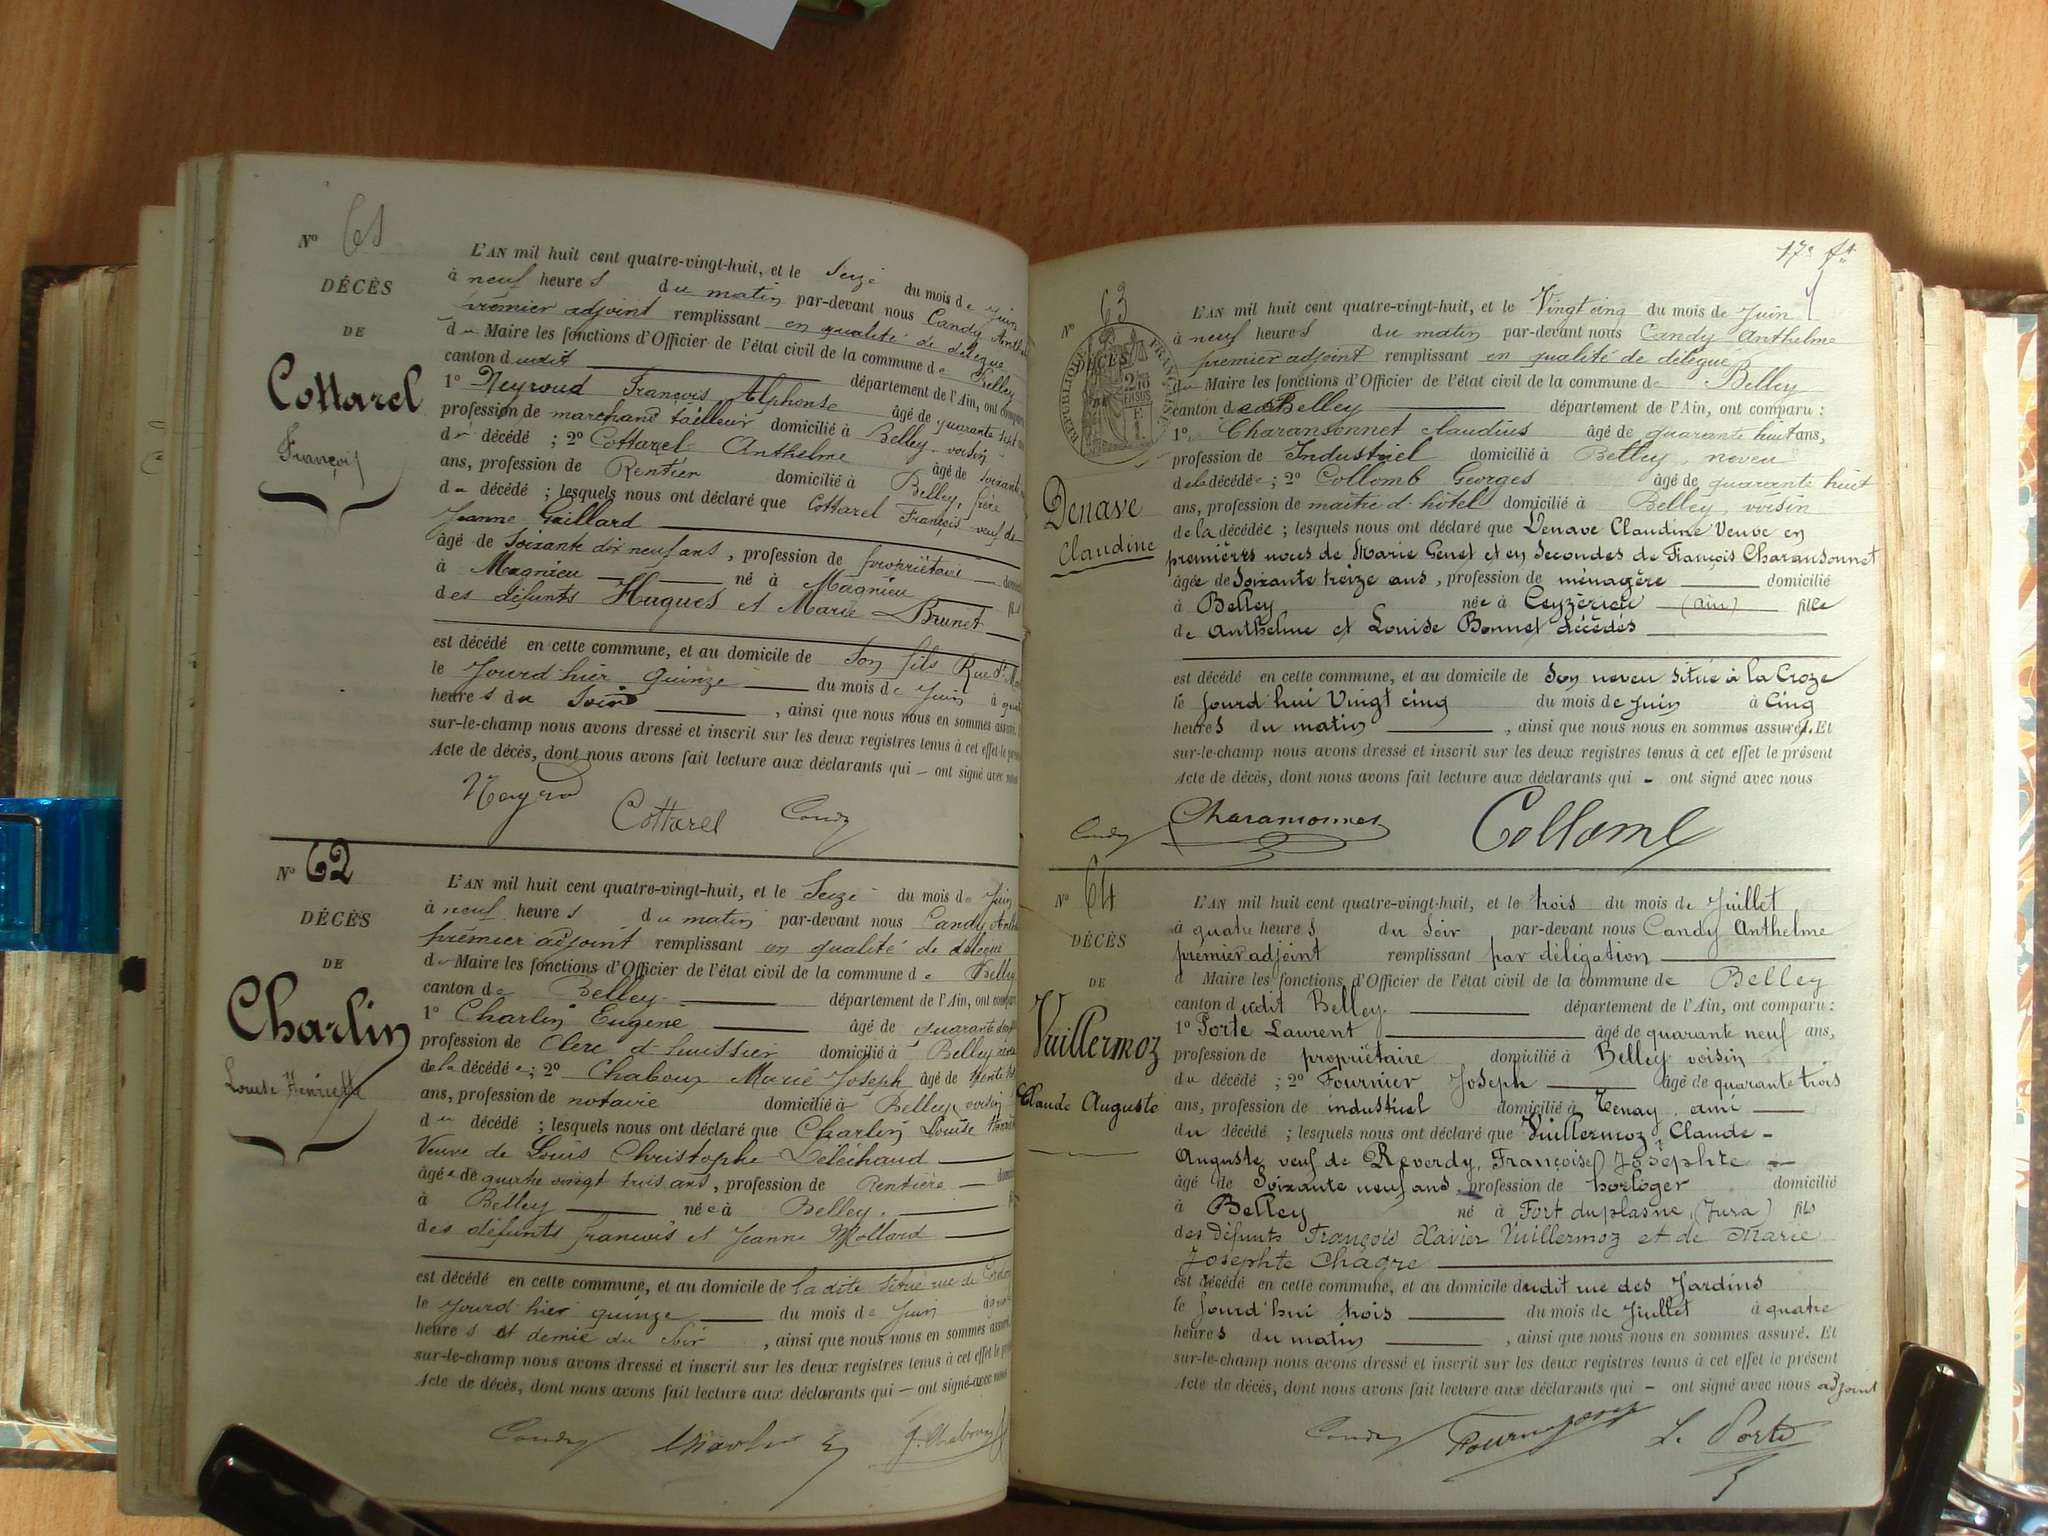 N° 61
DÉCÈS
DE
Cottarel
François
L'AN mil huit cent quatre-vingt-huit, et le Seize du mois de Juin
à neuf heures du matin par-devant nous Candy Anth
premier adjoint remplissant en qualité de délégué
du Maire les fonctions d'Officier de l'état civil de la commune de Belley
canton dudit département de l'Ain, ont compar
1° Neyroud François Alphonse âgé de quarante sept
profession de marchand tailleur domicilié à Belley voisin
du décédé ; 2° Cottarel Anthelme âgé de soixante
ans, profession de Rentier domicilié à Belley, frère
du décédé ; lesquels nous ont déclaré que Cottarel François veuf de
Jeanne Gaillard
âgé de Soixante dix neuf ans, profession de propriétaire
à Magnieu né à Magnieu fils
des défunts Hugues et Marie Brunet
est décédé en cette commune, et au domicile de Son fils Rue St
le Jourd'hier quinze du mois de Juin à
heures du Soir, ainsi que nous nous en sommes assuré.
sur-le-champ nous avons dressé et inscrit sur les deux registres tenus à cet effet le prése
Acte de décès, dont nous avons fait lecture aux déclarants qui – ont signé avec nous
Cottarel Candy
N° 62
DÉCÈS
DE
Charlin
Louise Henriette
L'AN mil huit cent quatre-vingt-huit, et le Seize du mois de Juin
à neuf heures du matin par-devant nous Candy Anth
premier adjoint remplissant en qualité de délégué
du Maire les fonctions d'Officier de l'état civil de la commune de Belley
canton de Belley département de l'Ain, ont compar
1° Charlin Eugène âgé de quarante
profession de Clerc d'huissier domicilié à Belley
de la décédée ; 2° Chaboux Marie Joseph âgé de trente
ans, profession de notaire domicilié à Belley voisin
du décédé ; lesquels nous ont déclaré que Charlin Louise
Veuve de Louis Christophe Deléchaud
âgée de quatre vingt trois ans, profession de Rentière
à Belley née à Belley.
des défunts françois et Jeanne Mollard
est décédé en cette commune, et au domicile de la dite située rue de
le Jourd'hier quinze du mois de Juin à
heures et demie du Soir, ainsi que nous nous en sommes assuré.
sur-le-champ nous avons dressé et inscrit sur les deux registres tenus à cet effet le pré
Acte de décès, dont nous avons fait lecture aux déclarants qui – ont signé avec nous
Candy
17e
N° 63
RÉPUBLIQUE FRANÇAISE
DÉCÈS
DE
Denave
Claudine
L'AN mil huit cent quatre-vingt-huit, et le Vingt cinq du mois de Juin
à neuf heures du matin par-devant nous Candy Anthelme
premier adjoint remplissant en qualité de délégué
du Maire les fonctions d'Officier de l'état civil de la commune de Belley
canton de Belley département de l'Ain, ont comparu :
1° Charansonnet Claudius âgé de quarante huit ans,
profession de Industriel domicilié à Belley, neveu
de la décédée ; 2° Collomb Georges âgé de quarante huit
ans, profession de maître d'hôtel domicilié à Belley, voisin
de la décédée ; lesquels nous ont déclaré que Denave Claudine Veuve en
premières noces de Marie Genet et en Secondes de François Charansonnet
âgée de Soixante treize ans, profession de ménagère domicilié
à Belley née à Ceyzérieu (ain) fille
de Anthelme et Louise Bonnet décédés
est décédé en cette commune, et au domicile de Son neveu situé à la Croze
le jourd'hui Vingt cinq du mois de juin à Cinq
heures du matin, ainsi que nous nous en sommes assurés. Et
sur-le-champ nous avons dressé et inscrit sur les deux registres tenus à cet effet le présent
Acte de décès, dont nous avons fait lecture aux déclarants qui – ont signé avec nous
Candy Charansonnet Collomb
N° 64
DÉCÈS
DE
Vuillermoz
Claude Auguste
L'AN mil huit cent quatre-vingt-huit, et le trois du mois de Juillet
à quatre heures du Soir par-devant nous Candy Anthelme
premier adjoint remplissant par délégation
d Maire les fonctions d'Officier de l'état civil de la commune de Belley
canton dudit Belley. département de l'Ain, ont comparu :
1° Porte Laurent âgé de quarante neuf ans,
profession de propriétaire domicilié à Belley voisin
du décédé ; 2° Fournier Joseph âgé de quarante trois
ans, profession de industriel domicilié à Tenay, ami
du décédé ; lesquels nous ont déclaré que Vuillermoz, Claude-
Auguste veuf de Reverdy, Françoise Josephte
âgé de Soixante neuf ans, profession de horloger domicilié
à Belley né à Fort du plasne, (Jura) fils
des défunts François Xavier Vuillermoz et de Marie
Josephte Chagre
est décédé en cette commune, et au domicile dudit rue des Jardins
le jourd'hui trois du mois de Juillet à quatre
heures du matin, ainsi que nous nous en sommes assuré. Et
sur-le-champ nous avons dressé et inscrit sur les deux registres tenus à cet effet le présent
Acte de décès, dont nous avons fait lecture aux déclarants qui – ont signé avec nous adjoint
Candy L. Porte